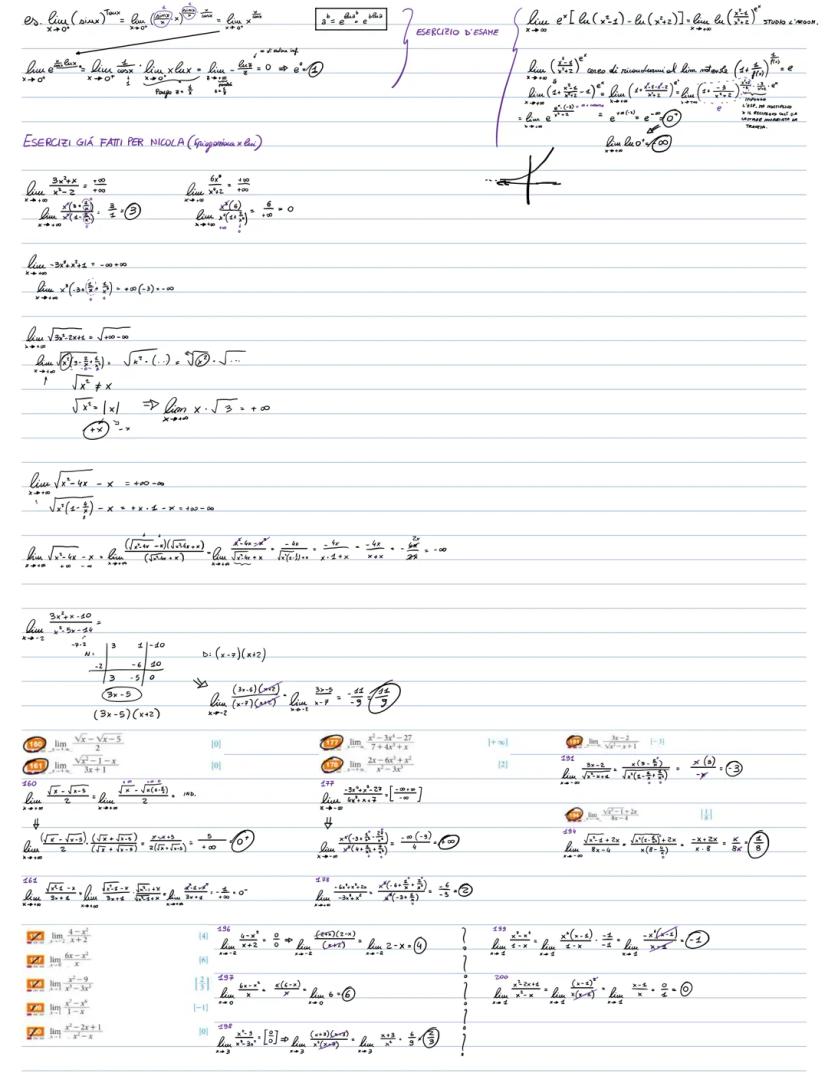 es. lim x→0⁺ (sinx)^tanx = lim x→0⁺ (sinx/x · x)^(sinx/x · x/cosx) = lim x→0⁺ x^(x/cosx)
a^b = e^(ln a^b) = e^(b ln a)
lim x→0⁺ e^(x/cosx lnx) = lim x→0⁺ 1/cosx · lim x→0⁺ x lnx = lim - lnz/z = 0 ⇒ e⁰ = 1
ESERCIZIO D'ESAME
lim x→+∞ e^x [ln(x²-1) - ln(x²+2)] = lim x→+∞ ln((x²-1)/(x²+2))^(e^x) STUDIO L'ARGOM.
lim x→+∞ ((x²-1)/(x²+2))^(e^x) cerco di ricondurmi al lim notevole (1 + 1/f(x))^f(x) = e
lim x→+∞ (1 + (x²-1)/(x²+2) - 1)^(e^x) = lim x→+∞ (1 + (x²-1-x²-2)/(x²+2))^(e^x) = lim x→+∞ (1 + -3/(x²+2))
= e^(+∞(-3)) = e^-∞ = 0⁺
lim x→+∞ ln 0⁺ = -∞
ESERCIZI GIÁ FATTI PER NICOLA (spiegazione x lui)
lim x→+∞ (3x²+x)/(x²-2) = +∞/+∞
lim x→+∞ x²(3+1/x)/x²(1-2/x²) = 3/1 = 3
lim x→+∞ = +∞/+∞
lim x→+∞ = 6/+∞ = 0
lim x→+∞ -3x³+x²+1 = -∞+∞
lim x→+∞ x³(-3+1/x+1/x³) = +∞(-3) = -∞
lim x→+∞ √(3x²-2x+1) = √(+∞-∞)
lim x→+∞ √(x²(3-2/x+1/x²)) = √(x²·(..)) = √x² · √...
√x² ≠ x
√x² = |x| ⇒ lim x→+∞ x·√3 = +∞
+x -x
lim x→+∞ √(x²-4x) - x = +∞-∞
√(x²(1-4/x)) - x = +x·1-x = +∞-∞
lim x→+∞ √(x²-4x) - x = lim x→+∞ (√(x²-4x) - x)(√(x²-4x)+x)/(√(x²-4x)+x) = lim x→+∞ (x²-4x-x²)/(√(x²-4x)+x) = -4x/(√(x²(1-4/x))+x) = -4x/(x·1+x) = -4x/(x+x) = = -∞
lim x→-2 (3x²+x-10)/(x²-5x-14) =
-7·2
N: 3 1 -10
-2 -6 10
3 -5 0
D: (x-7)(x+2)
3x-5
(3x-5)(x+2)
lim x→-2 (3x-5)(x+2)/(x-7)(x+2) = lim x→-2 (3x-5)/(x-7) = -11/-9 = 11/9
160 lim x→+∞ (√x - √(x-5))/2 [0]
161 lim x→+∞ (√(x²-1) - x)/(3x+1) [0]
177 lim x→-∞ (x² - 3x⁴ - 27)/(7 + 4x³ + x) [+∞]
178 lim (2x - 6x³ + x²)/(x² - 3x³) [2]
191 lim x→-∞ (3x-2)/√(x²-x+1) [-3]
194 lim x→-∞ (√(x²-1)+2x)/(8x-4) [1/8]
160
lim x→+∞ (√x - √(x-5))/2 = lim x→+∞ (√x - √(x(1-5/x)))/2 = IND.
lim x→+∞ (√x - √(x-5))/2 · (√x + √(x-5))/(√x + √(x-5)) = (x-x+5)/2(√x+√(x-5)) = 5/+∞ = 0⁺
161
lim x→+∞ (√(x²-1) - x)/(3x+1) = lim x→+∞ = -1/+∞ = 0⁻
177
lim x→-∞ = [-∞+∞/-∞]
lim x→-∞ = -∞(-3)/4 = +∞
178
lim x→+∞ (-6x³+x²+2x)/(-3x³+x²) = = -6/-3 = 2
191
lim x→-∞ (3x-2)/√(x²-x+1) = x(3-2/x)/√(x²(1-1/x+1/x²)) = x(3)/-x = -3
194
lim x→-∞ (√(x²-1)+2x)/(8x-4) = (-x+2x)/(x·8) = x/8x = 1/8
lim x→-2 (4-x²)/(x+2) [4]
lim x→0 (6x-x²)/x [6]
lim x→3 (x²-9)/(x³-3x²) [2/3]
lim x→1 (x⁷-x⁶)/(1-x) [-1]
lim x→1 (x²-2x+1)/(x²-x) [0]
196
lim x→-2 (4-x²)/(x+2) = 0/0 ⇒ lim x→-2 (2+x)(2-x)/(x+2) = lim x→-2 2-x = 4
197
lim x→0 (6x-x²)/x = x(6-x)/x = lim x→0 6 = 6
198
lim x→3 (x²-9)/(x³-3x²) = [0/0] ⇒ lim x→3 (x+3)(x-3)/x²(x-3) = lim x→3 (x+3)/x² = 6/9 = 2/3
199
lim x→1 (x⁷-x⁶)/(1-x) = lim x→1 x⁶(x-1)/(1-x) · -1/-1 = lim x→1 -x⁶(x-1)/(x-1) = -1
200
lim x→1 (x²-2x+1)/(x²-x) = lim x→1 (x-1)²/x(x-1) = lim x→1 (x-1)/x = 0/1 = 0